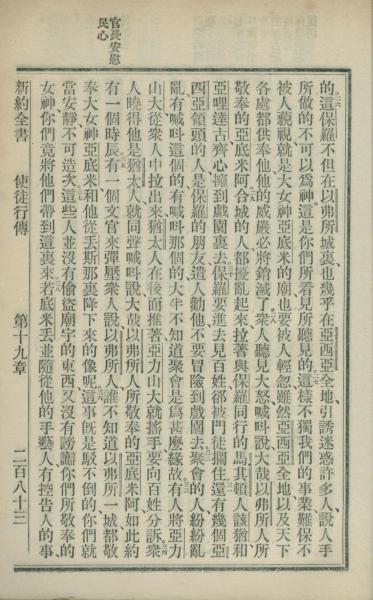 官長安慰
民心
的這保羅不但在以弗所城裏也幾乎在亞西亞全地引誘迷惑許多人說人手
所做的不可以爲神這是你們所看見所聽見的這樣不獨我們的事業難保不
被人藐視就是大女神亞底米的廟也要被人輕忽雖然亞西亞全地以及天下
各處都供奉他他的威嚴必將銷滅了衆人聽見大怒喊呌說大哉以弗所人所
敬奉的亞底米阿合城的人都擾亂起來拉著與保羅同行的馬其頓人該猶和
亞哩達古齊心擁到戲園裏去保羅要進去見百姓却被門徒攔住還有幾個亞
西亞領頭的人是保羅的朋友遣人勸他不要冒險到戲園去聚會的人紛紛亂
亂有喊呌這個的有喊呌那個的大半不知道聚會是爲甚麼緣故有人將亞力
山大從衆人中拉出來猶太人在後面推著亞力山大就搖手要向百姓分訴衆
人曉得他是猶太人就同聲喊呌說大哉以弗所人所敬奉的亞底米阿如此約
有一個時辰有一個文官來彈壓衆人說以弗所人誰不知道以弗所一城都敬
奉大女神亞底米和他從丟斯那裏降下來的像呢這事旣是駁不倒的你們就
當安靜不可造次這些人並沒有偷盜廟宇的東西又沒有謗讟你們所敬奉的
女神你們竟將他們帶到這裏來若底米丟並隨從他的手藝人有控告人的事
新約全書 使徒行傳 第十九章 二百八十三